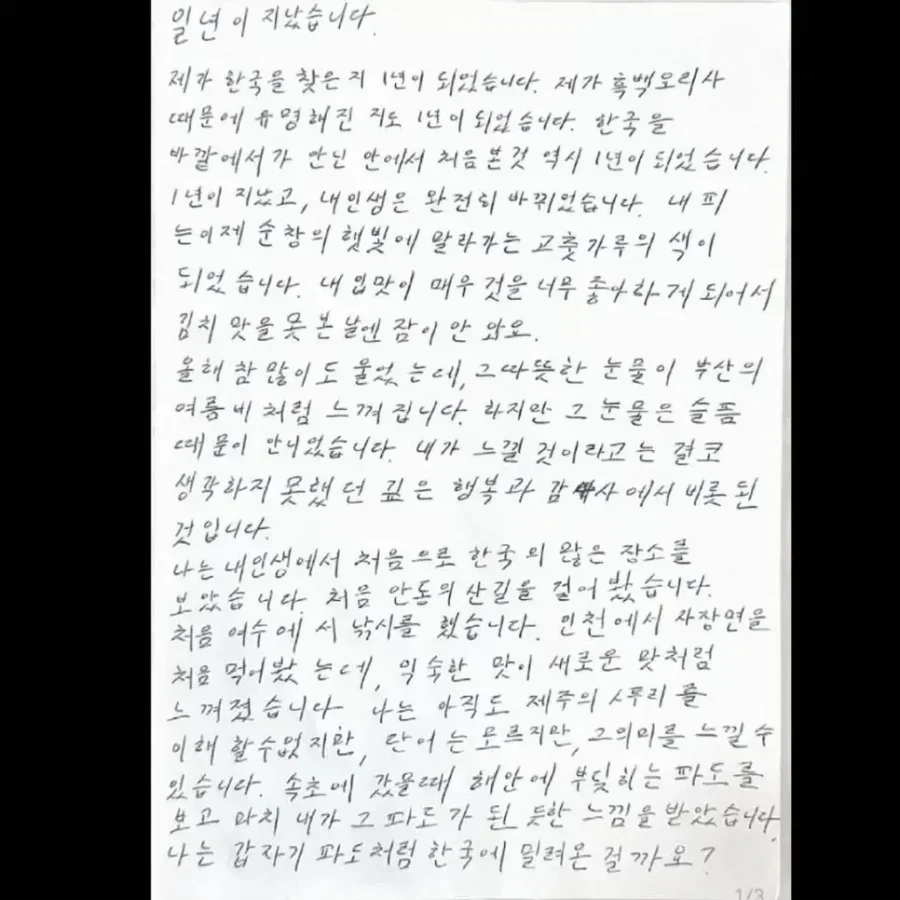 일년이 지났습니다.
제가 한국을 찾은 지 1년이 되었습니다. 제가 흑백요리사
때문에 유명해진 지도 1년이 되었습니다. 한국을
바깥에서가 안닌 안에서 처음 본것 역시 1년이 되었습니다.
1년이 지났고, 내인생은 완전히 바뀌었습니다. 내 피
는이제 순창의 햇빛에 말라가는 고춧가루의 색이
되었습니다. 내 입맛이 매우 것을 너무 좋아하게 되어서
김치 맛을 못 본 날엔 잠이 안 와요.
올해 참 많이도 울었는데, 그따뜻한 눈물이 부산의
여름비처럼 느껴집니다. 하지만 그 눈물은 슬픔
때문이 안니었습니다. 내가 느낄 것이라고는 결코
생각하지 못했던 깊은 행복과 감사에서 비롯된
것입니다.
나는 내인생에서 처음으로 한국의 많은 장소를
보았습니다. 처음 안동의 산길을 걸어 봤습니다.
처음 여수에서 낚시를 했습니다. 인천에서 자장면을
처음 먹어봤는데, 익숙한 맛이 새로운 맛처럼
느껴졌습니다 나는 아직도 제주의 사투리를
이해 할수없지만, 단어는 모르지만, 그의미를 느낄 수
있습니다. 속초에 갔을때 해안에 부딪히는 파도를
보고 마치 내가 그 파도가 된 듯한 느낌을 받았습니다.
나는 갑자기 파도처럼 한국에 밀려온 걸까요?
1/3